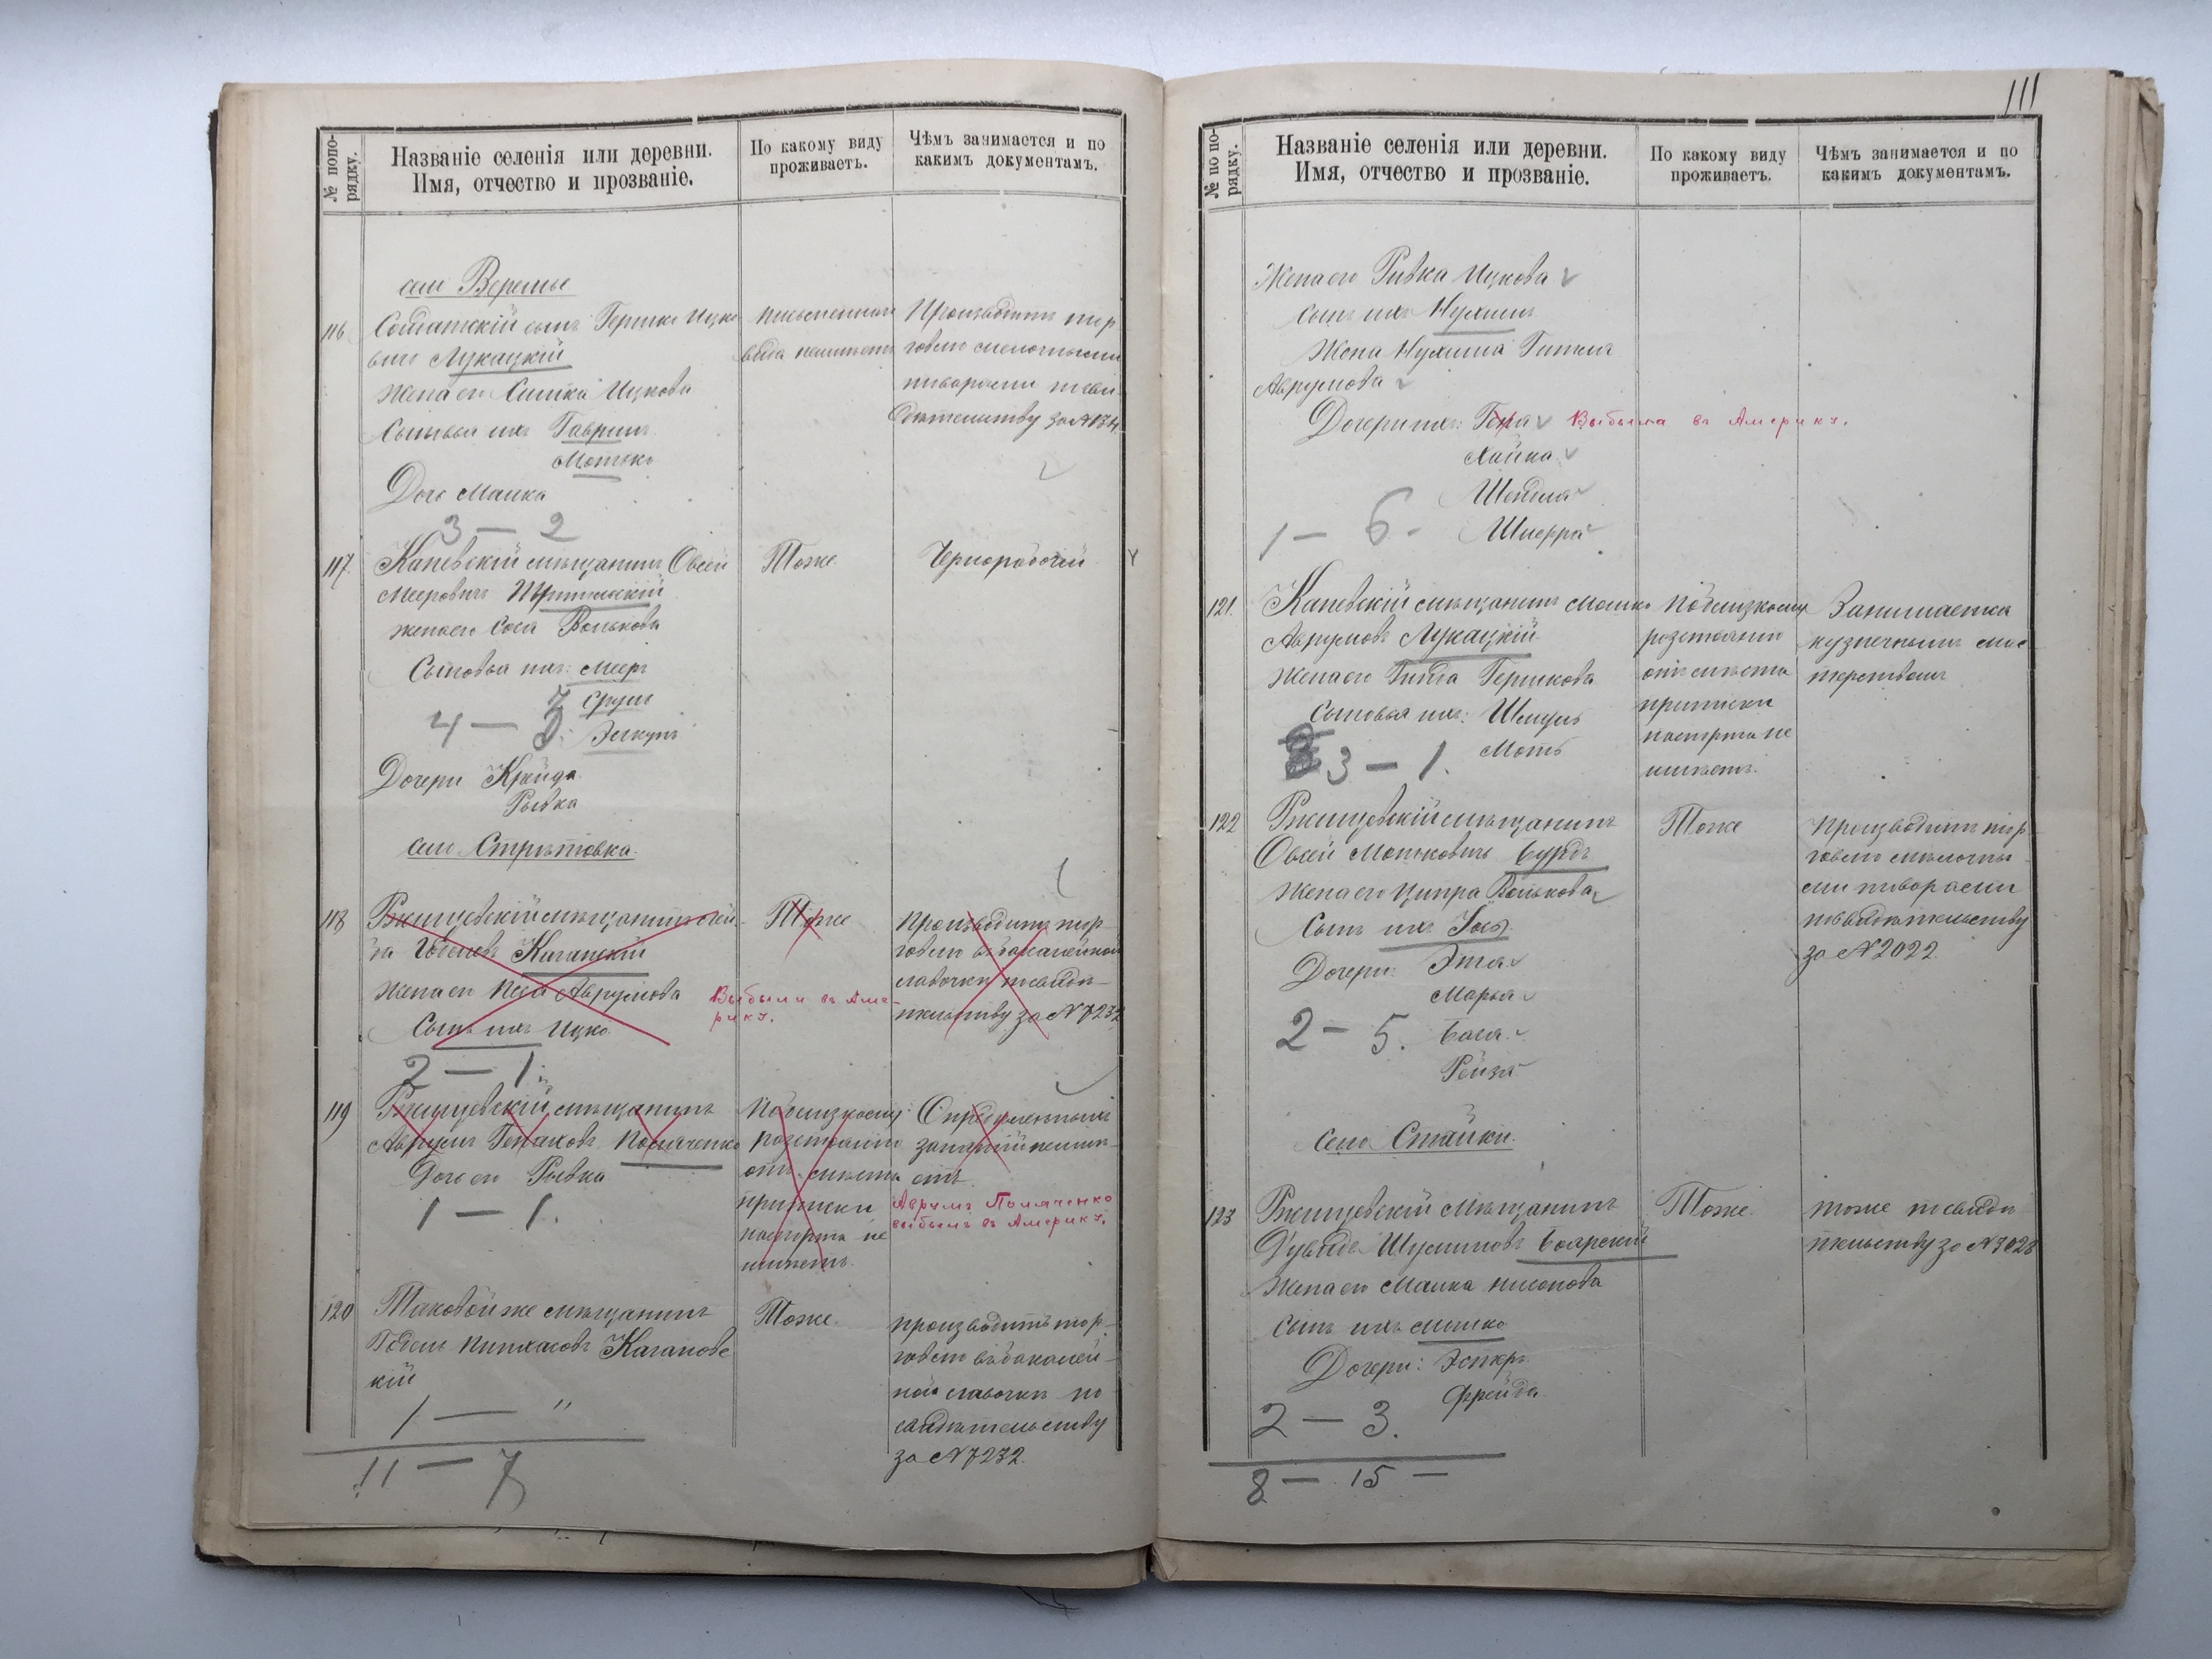 № попо-
рядку.
Названіе селенія или деревни.
Имя, отчество и прозваніе.
По какому виду
проживаетъ.
Чѣмъ занимается и по
какимъ документамъ.
село Веремье
116
Солдатскій сынъ Гершко Ицко
вичъ Лукацкій
жена его Симка Ицкова
Сыновья ихъ Гаврилъ
Мотько
Дочь Малка
3 — 2
письменнаго
вида неимѣетъ
Производитъ тор
говлю мелочными
товарами по сви
дѣтельству за №
117.
Каневскій мѣщанинъ Овсей
Мееровичъ
жена его Сося Волькова
Сыновья ихъ: Мееръ
Сруль
4 —
Дочери
Рывка
Тоже
Чернорабочій
село Стрѣтовка.
118
Ржищевскій мѣщанинъ
Каганскій
жена его Аврумова
Сынъ ихъ Ицко
2 — 1.
Тоже
Выбыли въ Аме-
рику.
производитъ тор
говлю въ бакалейной
лавочки по свидѣ-
тельству за № 7232
119
Ржищевскій мѣщанинъ
Аврумъ
Дочь его Рывка
1 — 1.
По близкому
разстоянію
отъ мѣста
приписки
паспорта не
имѣетъ.
Опредѣленныхъ
занятій неимѣ-
етъ
Аврумъ
выбылъ въ Америку.
120
Таковой же мѣщанинъ
Годель Пинхасовъ Каганов
кій
1 — "
11 — 7
Тоже.
производитъ тор-
говлю въ бакалей-
ной лавочки по
свидѣтельству
за № 7232.
111
№ по по-
рядку.
Названіе селенія или деревни.
Имя, отчество и прозваніе.
По какому виду
проживаетъ.
Чѣмъ занимается и по
какимъ документамъ.
Жена его Ривка Ицкова
Сынъ ихъ Нухимъ
Жена Нухима Гитля
Аврумова
Дочери ихъ: Выбыла въ Америку.
Хайка
Шейдля
1 — 6.
121.
Каневскій мѣщанинъ Мошко
Аврумовъ Лукацкій
жена его Гершкова
Сыновья ихъ:
Моть
3 — 1.
По близкому
разстоянію
отъ мѣста
приписки
паспорта не
имѣетъ.
Занимается
кузнечнымъ мас
терствомъ
122
Ржищевскій мѣщанинъ
Овсей Мотьковичъ Бурдъ
жена его Ципра Волькова
Сынъ ихъ
Дочери: Этля
Марья
2 — 5. Бася
Рейзя
Тоже
производитъ тор
говлю мѣлочны
ми товарами
по свидѣтельству
за № 2022.
Село Стайки.
123
Ржищевскій мѣщанинъ
Дувидъ Боярскій
жена его Малка
Сынъ ихъ Мошко
Дочери: Эстеръ
Фрейда
2 — 3.
8 — 15 —
Тоже.
тоже по свидѣ
тельству за №